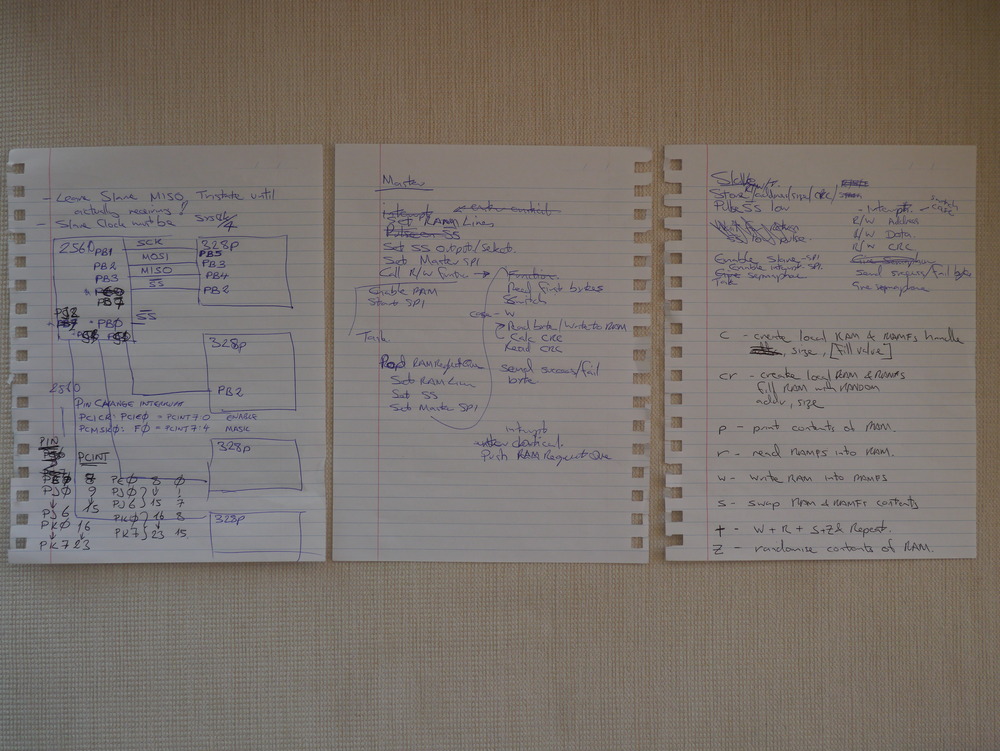 - Leave Slave MISO Tristate until
actually receiving!
- Slave Clock must be sysclk/4
2560 PB1 SCK 328p
MOSI PB5
PB2 PB3
PB3 MISO PB4
SS PB2
PB7
PB0 SS
328p
2560
PB2
PIN CHANGE INTERRUPT
PCICR: PCIE0 = PCINT7:0 ENABLE
PCMSK0: F0 = PCINT7:4 MASK
328p
PIN
PCINT
PE0 8 PE0 8 0
PJ0 9 PJ0 9 1
PJ6 15 PJ6 15 7
PK0 16 PK0 16 8
PK7 23 PK7 23 15
328p
Master
Set RAM Lines
Set SS Output/select.
Set Master SPI
Call R/W function → Function
Enable RAM
Start SPI
Read first bytes
Switch
case - W
Read byte/Write to RAM
Calc CRC
Read CRC
Send success/fail
byte
Task
Pop RAMRequestQue
Set RAM Lines
Set SS
Set Master SPI
Interrupt
enter critical.
Push RAMRequestQue
Slave
Pulse SS low
Enable Slave SPI
Enable Interrupt SPI.
Give semaphore
- Interrupt.
R/W Address
R/W Data.
R/W CRC
Send success/fail byte
Give semaphore
C - create local RAM & RAMFS handle
size, [fill value]
cr - create local RAM & RAMFS
fill RAM with RANDOM
addr, size
p - print contents of RAM.
r - read RAMFS into RAM.
w - write RAM into RAMFS
s - swap RAM & RAMFS contents
t - W + R + S + Z & Repeat.
Z - randomise contents of RAM.